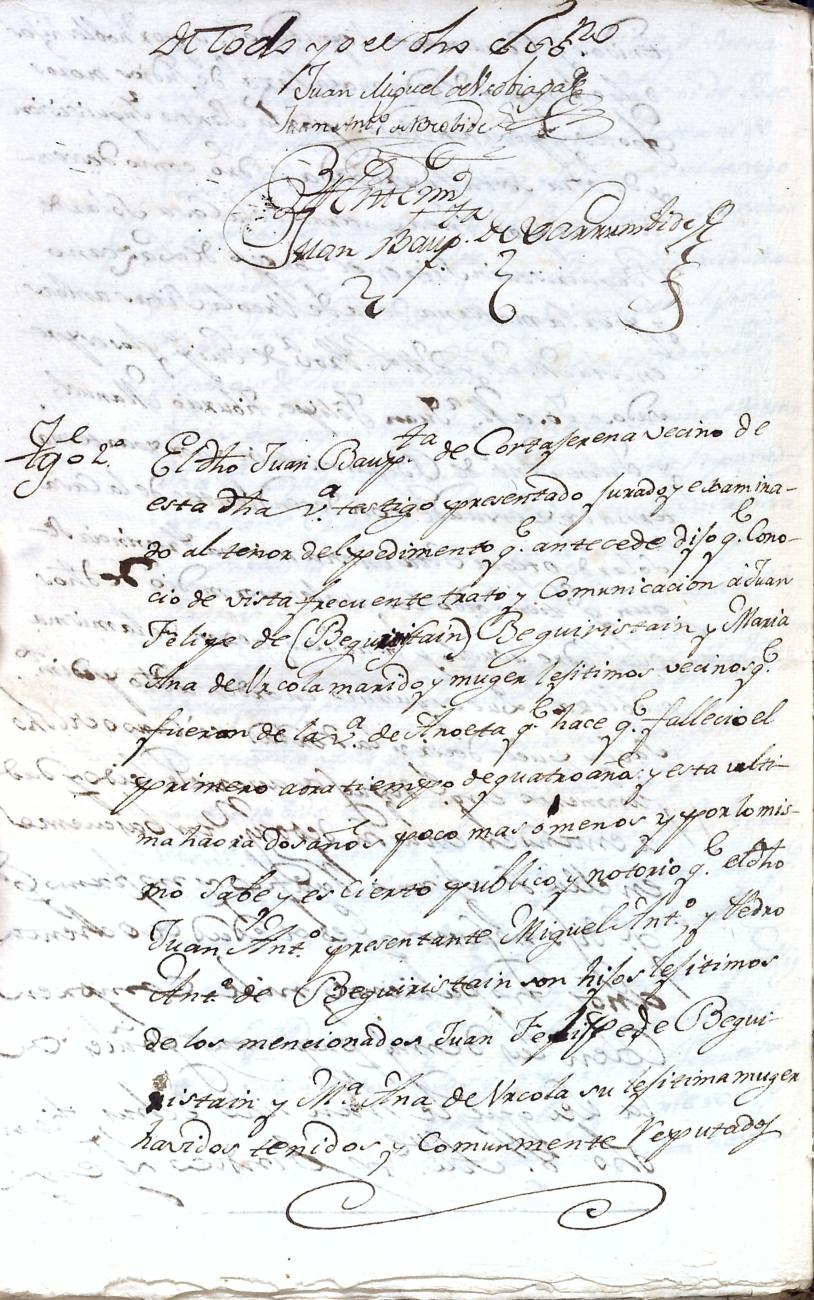 de todo yo el dho essno
Juan Miguel de
Juan Anto de
Ante mi
Juan Baupta de Larrumbide
Tgo 2o El dho Juan Baupta de Cortaserena vecino de
esta dha va testigo presentado jurado y examina-
do al tenor del pedimento qe antecede dijo qe Cono-
cio de vista frecuente trato y Comunicacion a Juan
Felipe de (Beguiristain) Beguiristain y Maria
Ana de Urcola marido y muger lejitimos vecinos qe
fueron de la va de Anoeta qe hace qe fallecio el
primero aora tiempo de quatro años y esta ulti-
ma haora dos años poco mas o menos y por lo mis-
mo Sabe y es Cierto publico y notorio qe el dho
Juan Anto presentante Miguel Anto y Pedro
Anto de Beguiristain son hijos lejitimos
de los mencionados Juan Felipe de Begui-
ristain y Ma Ana de Urcola su lejitima muger
havidos tenidos y Comunmente Reputados